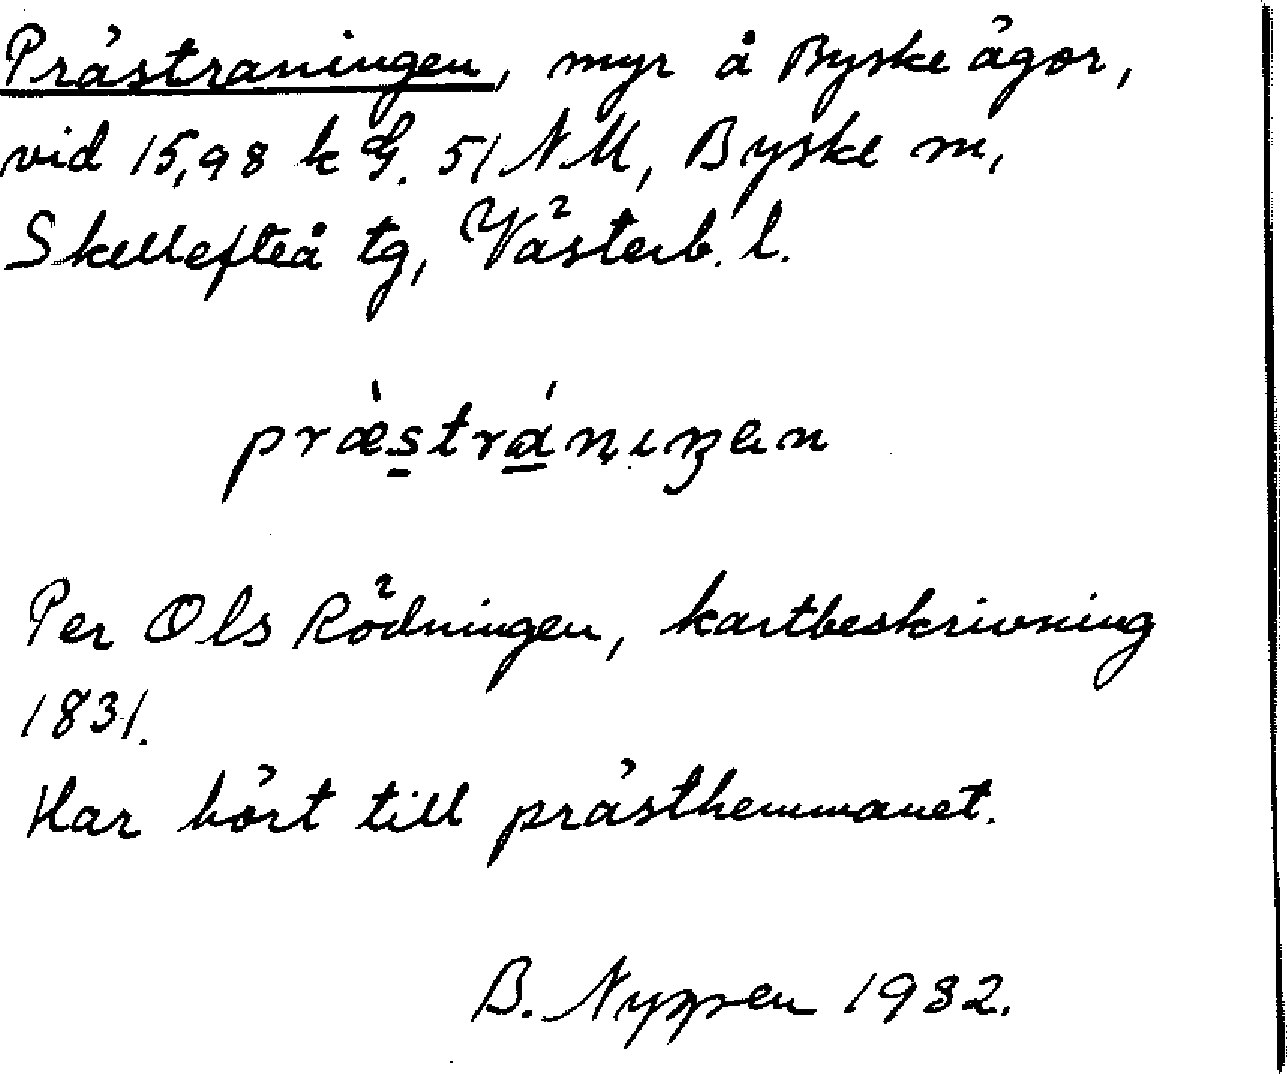 Prästraningen, myr å Byske ägor,
vid 15,98 k G. 51 NM, Byske sn,
Skellefteå tg, Västerb. l.
præ̀strániŋen
Per Ols Rödningen, kartbeskrivning
1831.
Har hört till prästhemmanet.
B. 1932.